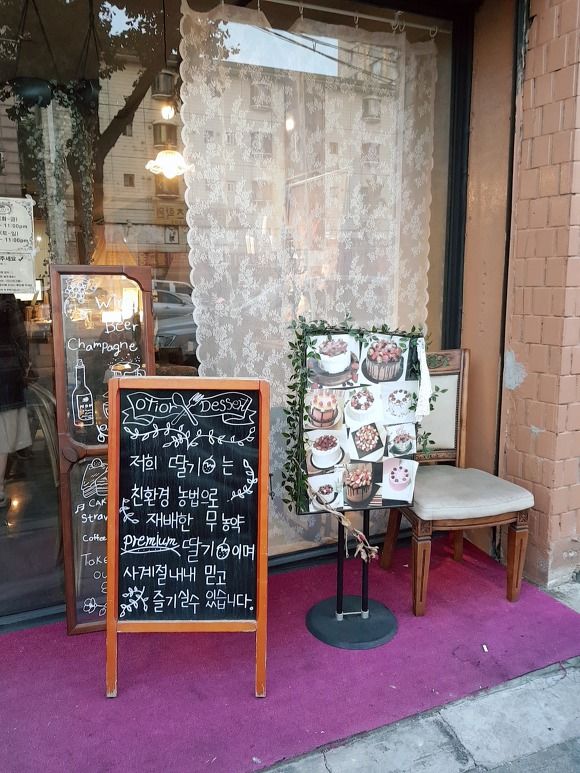 (화-금)
11:00pm
(토-일)
11:00pm
주세요
Wine
Beer
Champagne
CAKE
Coffee
Dessert
저희 딸기는
친환경 농법으로
재배한 무농약
premium 딸기이며
사계절내내 믿고
즐기실수 있습니다.